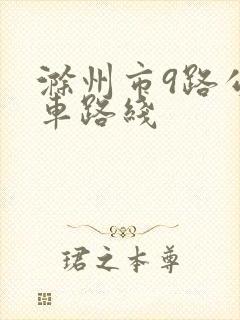 滁州市9路公
車路綫
珺之本尊